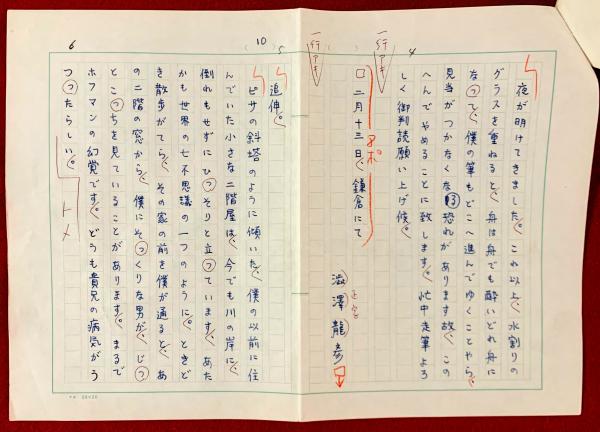 夜が明けてきました。これ以上、水割りの
グラスを重ねると、舟は舟でも酔いどれ舟に
なって、僕の筆もどこへ進んでゆくことやら、
見当がつかなくなる恐れがあります故、この
へんでやめることに致します。忙中走筆よろ
しく御判読願い上げ候。
4
一行アキ
二月十三日、鎌倉にて
8ポ
澁澤龍彦
正字
一行アキ
(10)
5
追伸。
ピサの斜塔のように傾いた、僕の以前に住
んでいた小さな二階屋は、今でも川の岸に、
倒れもせずにひっそりと立っています、あた
かも世界の七不思議の一つのように。ときど
き散歩がてら、その家の前を僕が通ると、あ
の二階の窓から、僕にそっくりな男が、じっ
とこっちを見ていることがあります。まるで
ホフマンの幻覚です。どうも貴兄の病気がう
つったらしい。
トメ
6